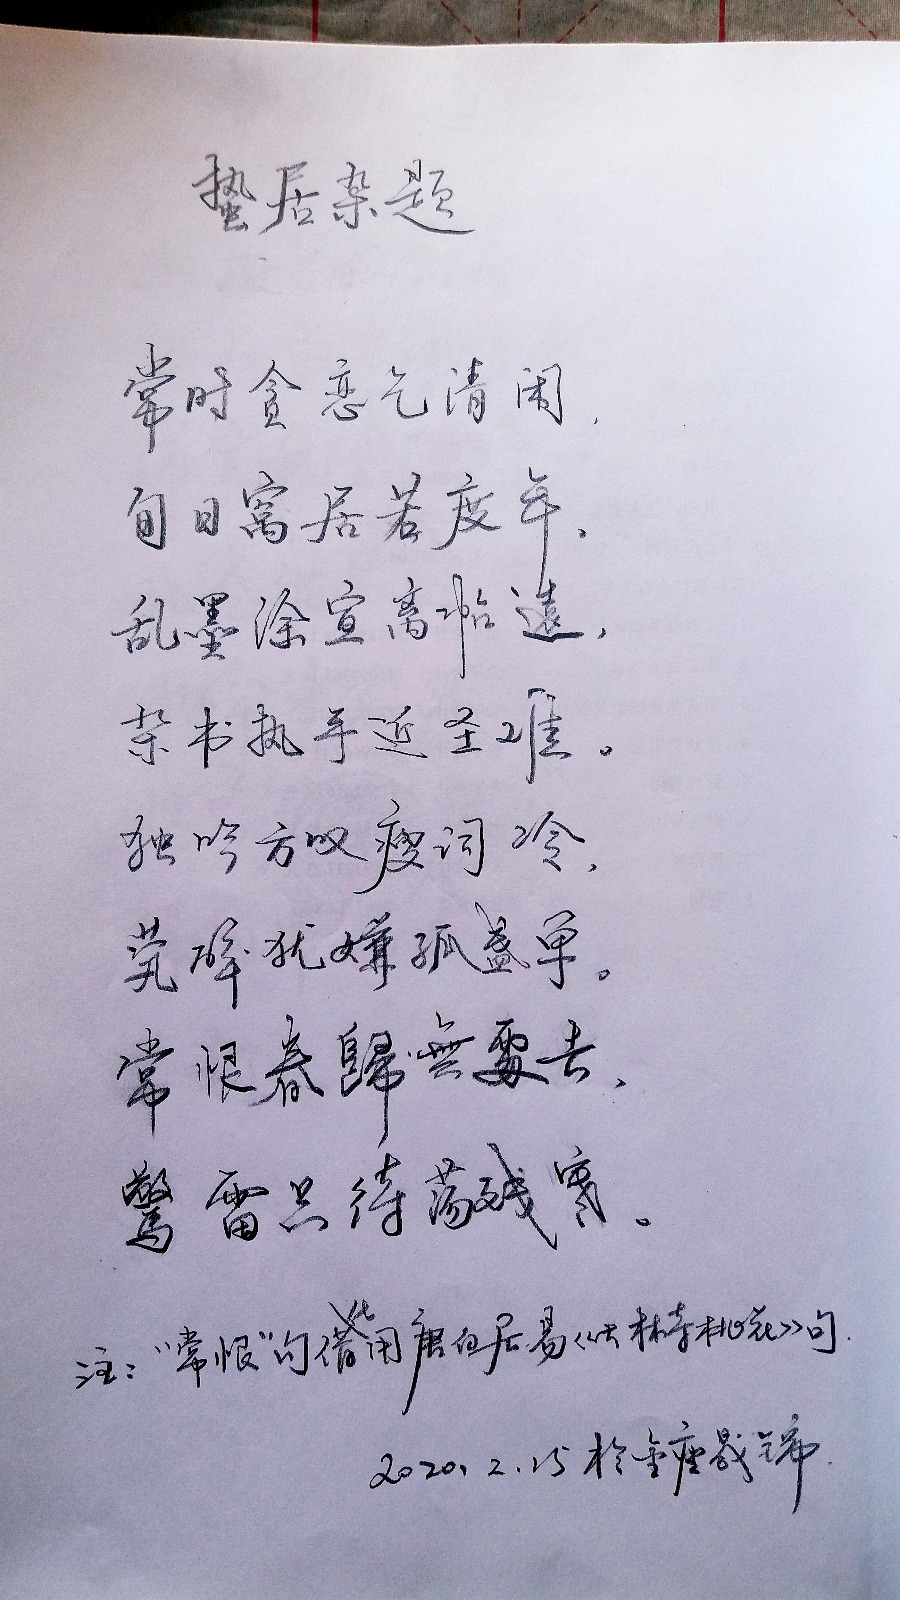 蛰居杂题
常时贪恋乞清闲,
旬日窝居若度年.
乱墨涂宣离帖远,
杂书执手近圣难。
独吟方叹瘦词冷,
茕醉犹嫌孤盏单。
常恨春歸無處去,
驚雷只待荡残寒。
注:"常恨"句借化用唐白居易《大林寺桃花》句.
2020.2.15 於